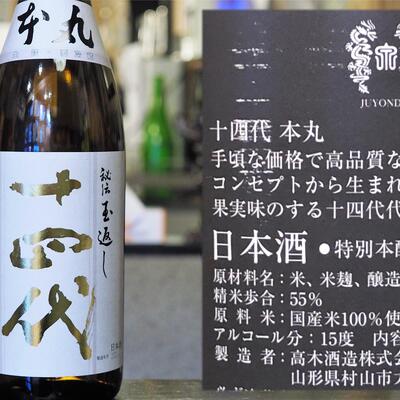 本丸
秘伝玉返し
十四代
JUYOND
十四代 本丸
手頃な価格で高品質な
コンセプトから生まれ
果実味のする十四代代
日本酒 ● 特別本醸
原材料名：米、米麹、醸造
精米歩合：55%
原 料 米：国産米100%使
アルコール分：15度 内容
製 造 者：高木酒造株式会
山形県村山市大